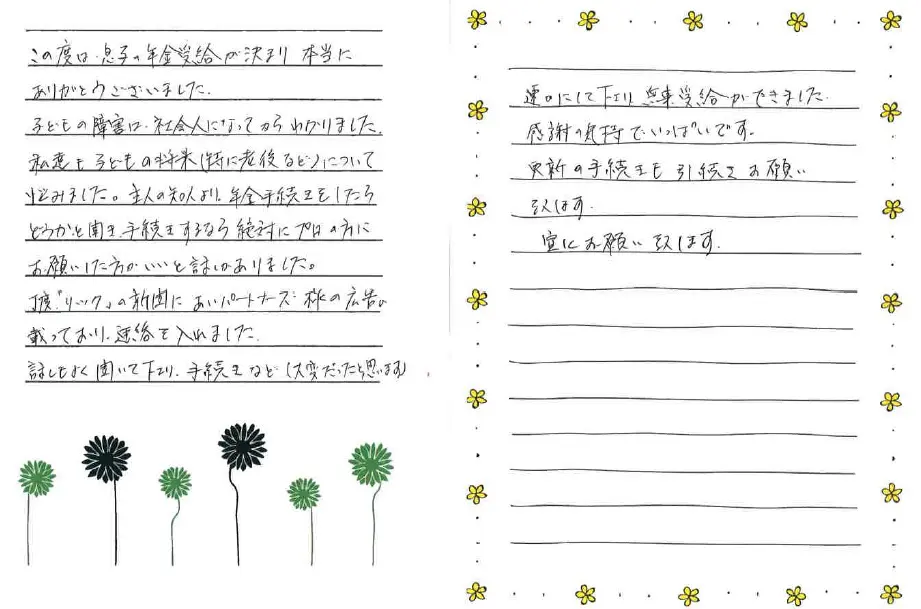 この度は、息子の年金受給が決まり 本当に
ありがとうございました。
子どもの障害は、社会人になってからわかりました。
私達も子どもの将来(特に老後など)について
悩みました。主人の知人より、年金手続きをしたら
どうかと聞き、手続きするなら絶対にプロの方に
お願いした方がいいと話しがありました。
丁度「リック」の新聞に あいパートナーズ様の広告が
載っており、連絡を入れました。
話しもよく聞いて下さり、手続きなど(大変だったと思います)
速やかにして下さり 無事受給ができました。
感謝の気持でいっぱいです。
更新の手続きも引続きお願い
致します。
宜しくお願い致します。